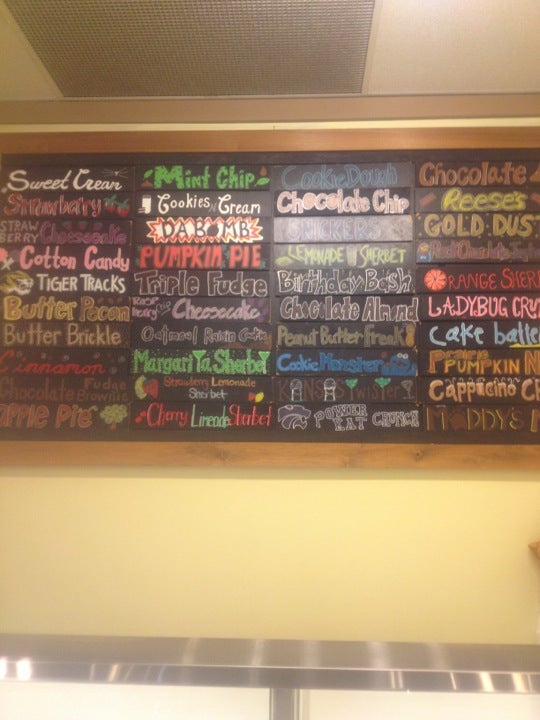 Sweet Cream
Strawberry
STRAW
BERRY Cheesecake
Cotton Candy
TIGER TRACKS
Butter Pecan
Butter Brickle
Cinnamon
Chocolate Fudge
Brownie
Apple Pie
Mint Chip
Cookies n Cream
DA BOMB
PUMPKIN PIE
Triple Fudge
RASP
Berry Cheesecake
Oatmeal Raisin Cookie
Margarita Sherbet
Strawberry Lemonade
Sherbet
Cherry Limeade Sherbet
Cookie Dough
Chocolate Chip
SNICKERS
LEMONADE SHERBET
Birthday Bash
Chocolate Almond
Peanut Butter Freak
Cookie Monster
KANSAS Twister
POWER
KAT CRUNCH
Chocolate
Reese's
GOLD DUST
ORANGE SHERB
LADYBUG CRU
Cake batte
PRAIRIE
PUMPKIN N
Cappucino C
MADDYS